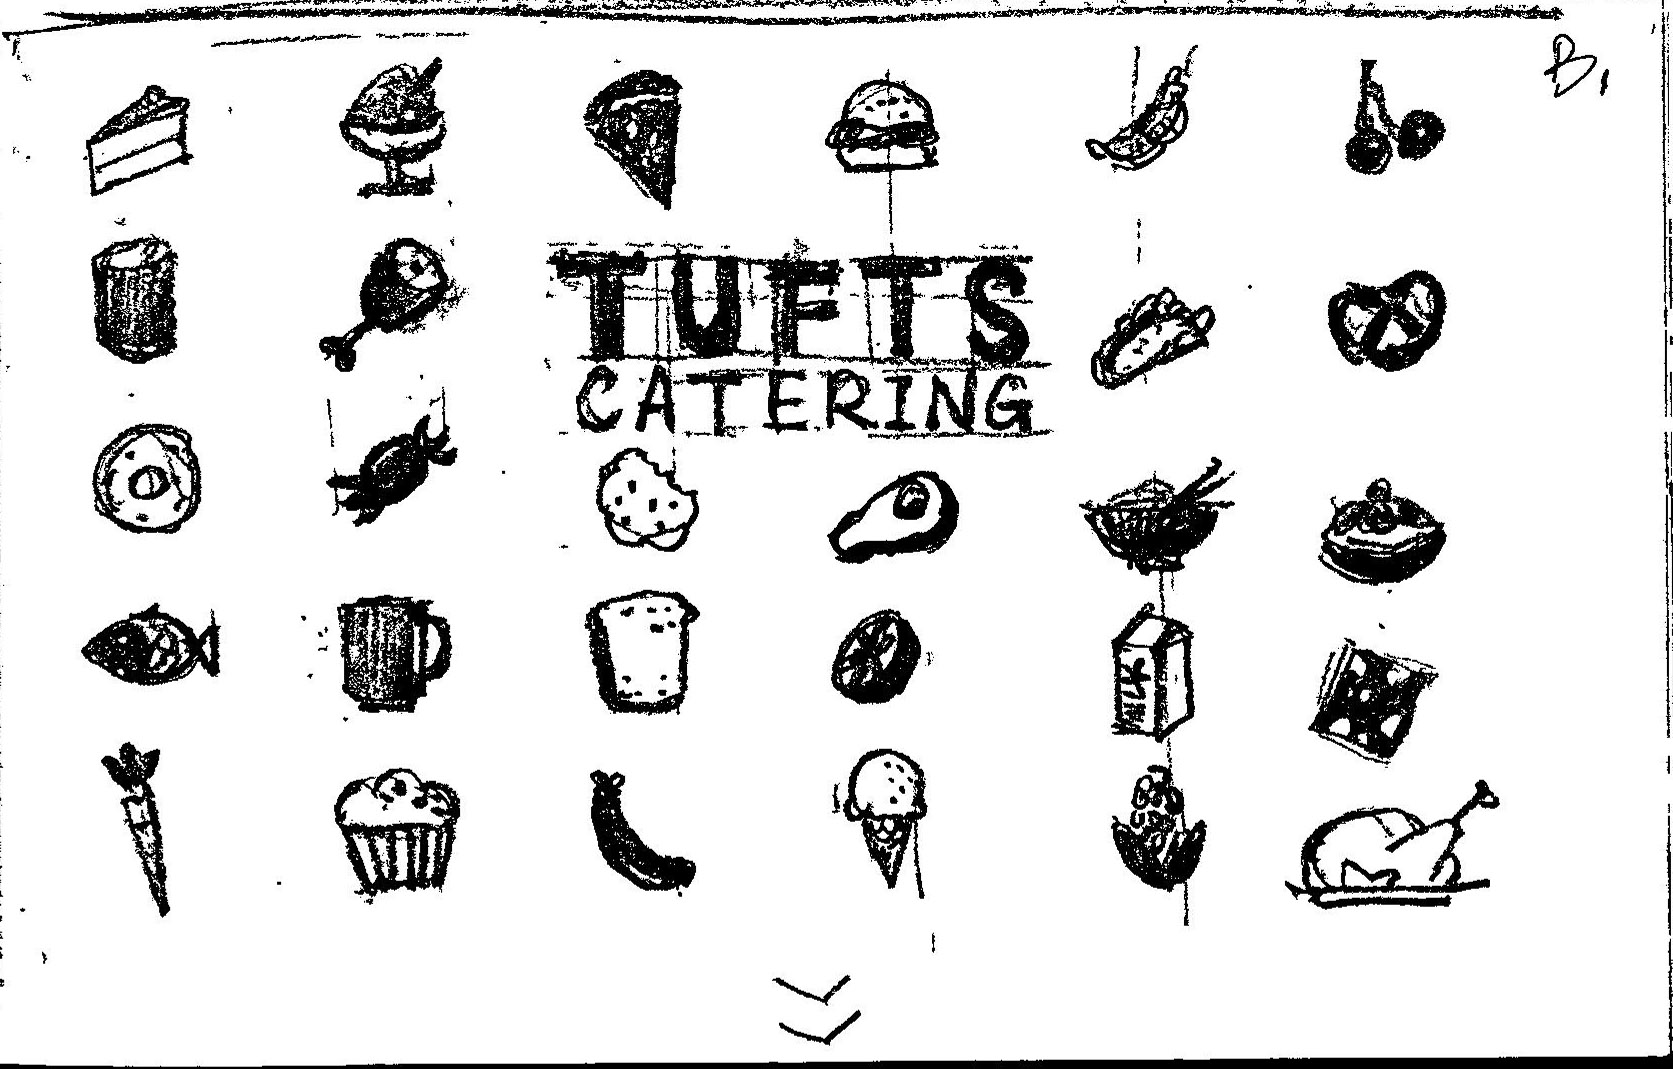 B1
TUFTS
CATERING
MILK